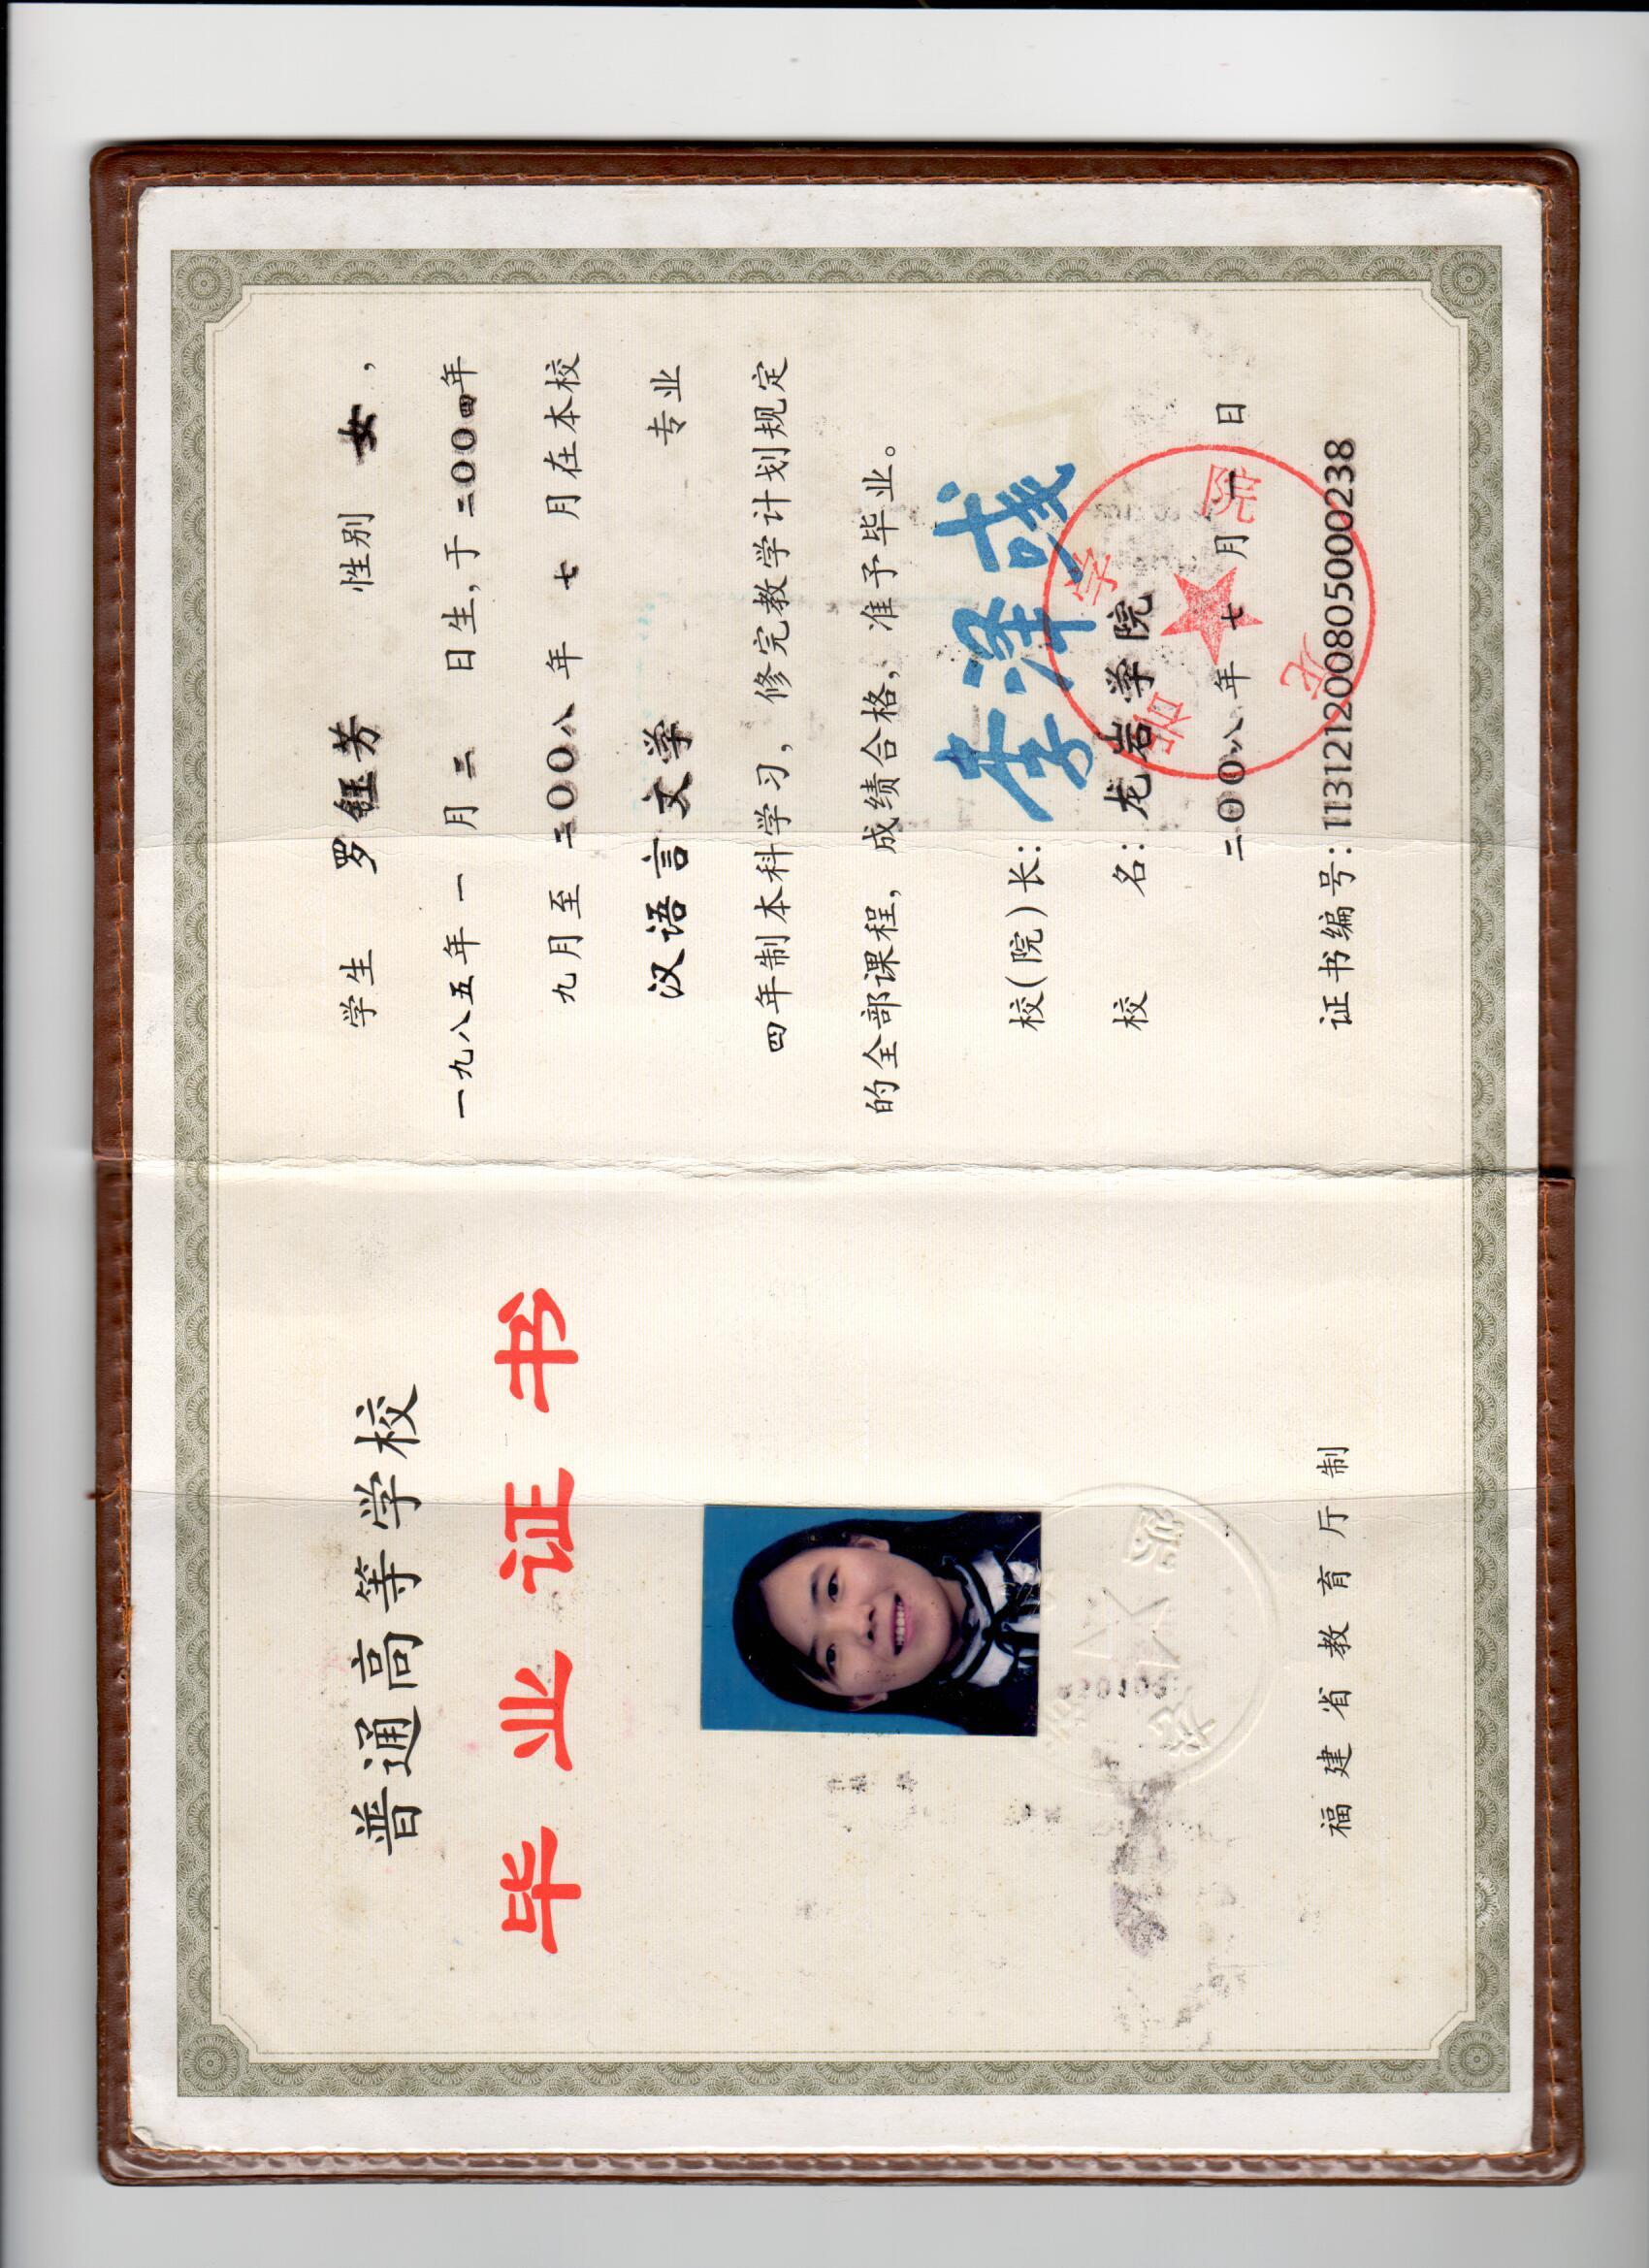 普通高等学校
毕业证书
福建省教育厅制
学生 罗钰芳 性别 女,
一九八五年一月三日生,于二00四年
九月至二00八年七月在本校
汉语言文学 专业
四年制本科学习,修完教学计划规定
的全部课程,成绩合格,准予毕业。
校(院)长:李泽彧
校 名:龙岩学院
二00八年七月一日
证书编号:113121200805000238
龙岩学院